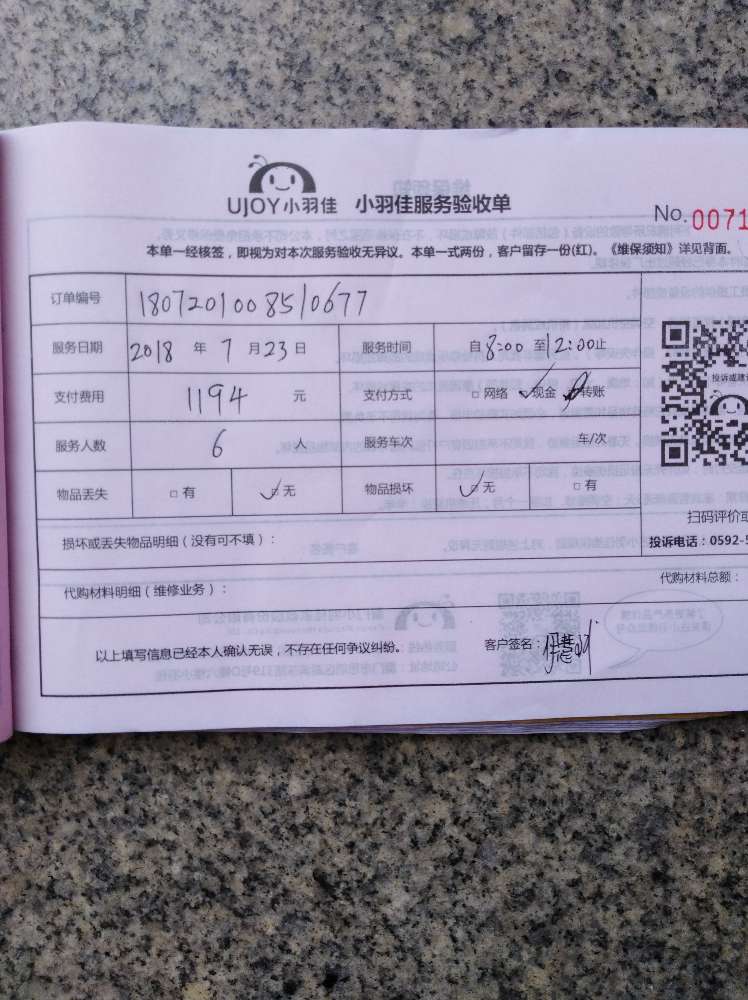 UJOY小羽佳 小羽佳服务验收单
No.0071
本单一经核签，即视为对本次服务验收无异议。本单一式两份，客户留存一份(红)。《维保须知》详见背面。
订单编号 1807201008510677
服务日期 2018 年 7 月 23 日 服务时间 自 8:00 至 12:00 止
支付费用 1194 元 支付方式 □ 网络 ✓ 现金 转账
服务人数 6 人 服务车次 车/次
物品丢失 □ 有 ✓ 无 物品损坏 ✓ 无 □ 有
投诉或建议
扫码评价或
损坏或丢失物品明细（没有可不填）：
投诉电话：0592-5
代购材料明细（维修业务）：
代购材料总额：
以上填写信息已经本人确认无误，不存在任何争议纠纷。 客户签名：